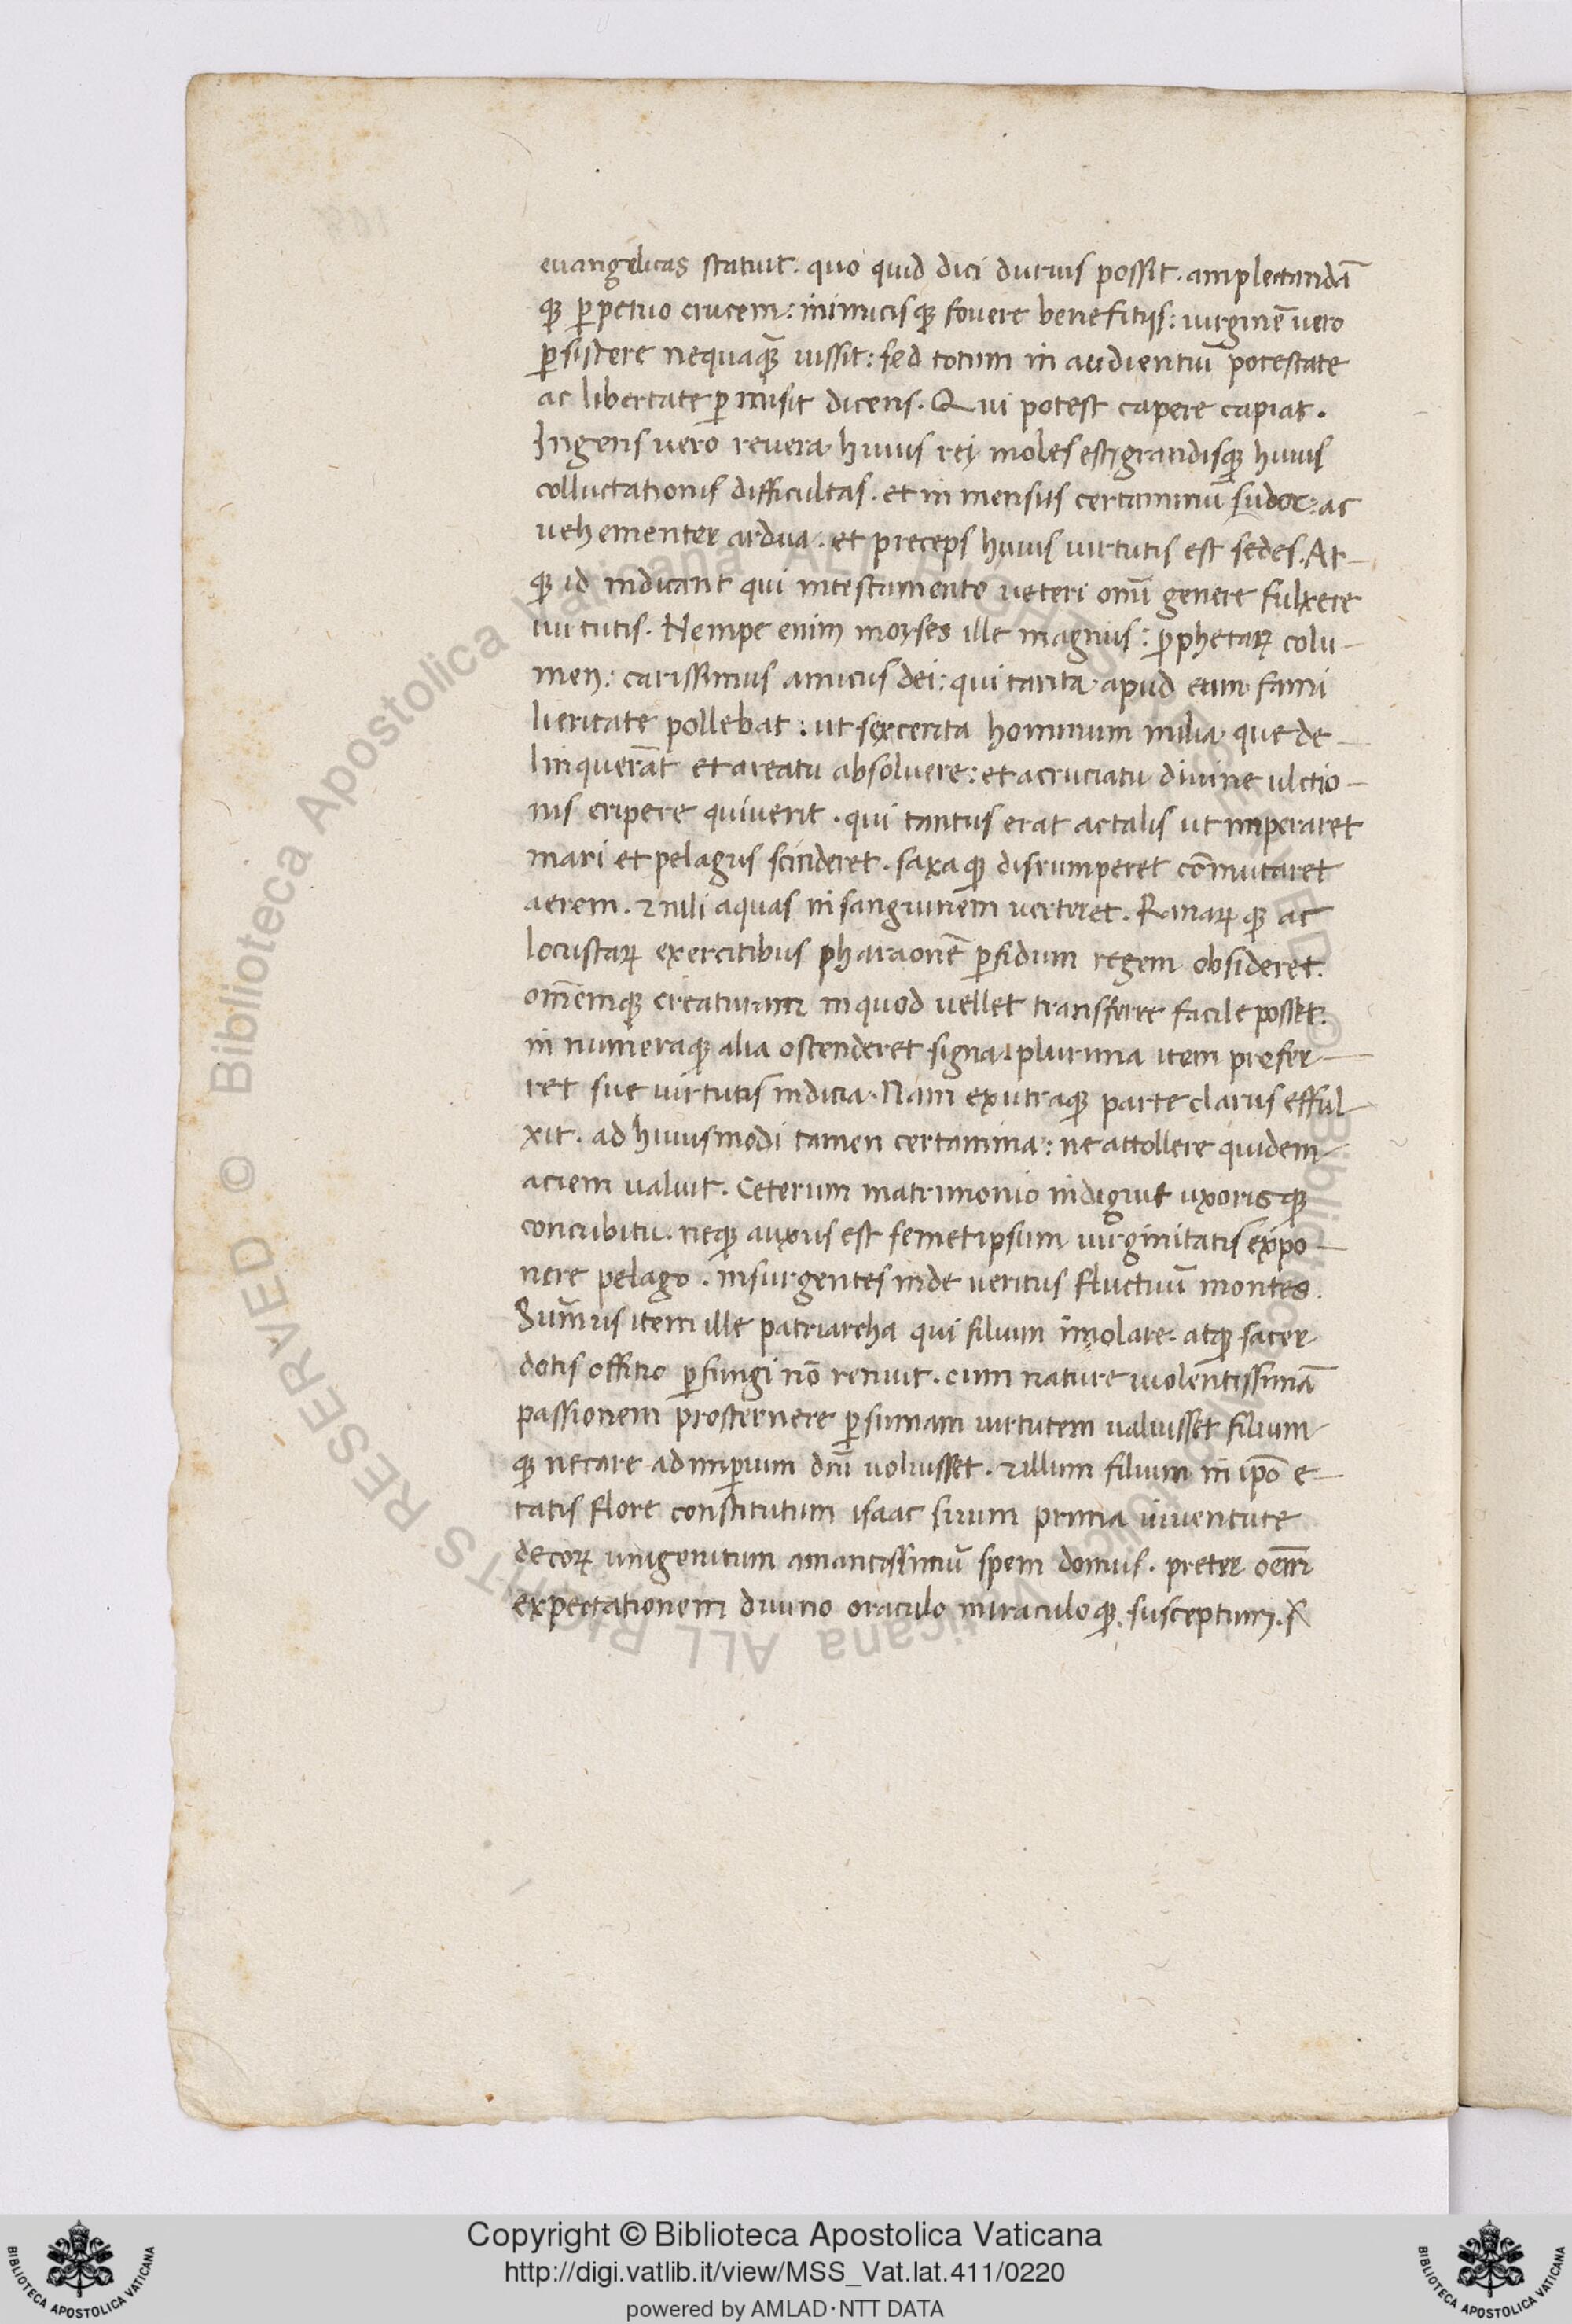 euangelicas statuit. quo quid dici durius possit. amplectandā
qꝫ ꝑpetuo crucem: inimicisqꝫ fovere benefitijs: uirginē uero
ꝑsistere nequaqꝫ̄ iussit: sed totum in audientiū potestate
ac libertate ꝑmisit dicens. Qui potest capere capiat.
Ingens uero reuera huius rei moles est, grandisqꝫ huius
colluctationis difficultas. et in mensus certaminū sudor: ac
uehementer ardua. et preceps huius uirtutis est sedes. At-
qꝫ id indicant qui intestamento ueteri omī genere fulxere
uirtutis. Nempe enim moyses ille magnus: ꝓphetaꝝ colu-
men: carissimus amicus dei: qui tanta apud eum fami
lieritate pollebat: ut sexcenta hominum milia que de-
linquerāt et areatu absoluere: et acruciatu diuine ulctio-
nis eripere quiuerit. qui tantus erat ac talis ut imperaret
mari et pelagus scinderet. saxaqꝫ disrumperet cōmutaret
aerem. ⁊ nili aquas in sanguinem uerteret. Ranaꝝqꝫ ac
locustaꝝ exercitibus pharaonē ꝑfidum regem obsideret.
om̄emqꝫ creaturam inquod uellet transferre facile posset.
in numeraqꝫ alia ostenderet signa. plurima item profer-
ret sue uirtutis indicia. Nam exutraqꝫ parte clarus efful
xit. ad huiusmodi tamen certamina: ne attollere quidem
aciem ualuit. Ceterum matrimonio indiguit uxorisqꝫ
concubitu. neqꝫ auxus est semetipsum uirginitatis expo-
nere pelago. insurgentes inde ueritus fluctuū montes.
Sum̄us item ille patriarcha qui filium īmolare. atqꝫ sacer
dotis offitio ꝑfungi nō renuit. cum nature uiolentissimā
passionem prosternere ꝑ sumam uirtutem ualuisset filium
qꝫ necare ad imꝑium dn̄i uoluisset. ⁊ illum filium in ip̄o e-
tatis flore constitutum isaac suum prima iuuentute
decoꝝ unigenitum amantissimū spem domus. preter oēm
expectationem diuino oraculo miraculoqꝫ. susceptum.
Copyright © Biblioteca Apostolica Vaticana
http://digi.vatlib.it/view/MSS_Vat.lat.411/0220
powered by AMLAD·NTT DATA
BIBLIOTECA APOSTOLICA VATICANA
BIBLIOTECA APOSTOLICA VATICANA
© Biblioteca Apostolica Vaticana ALL RIGHTS RESERVED
© Biblioteca Apostolica Vaticana ALL RIGHTS RESERVED